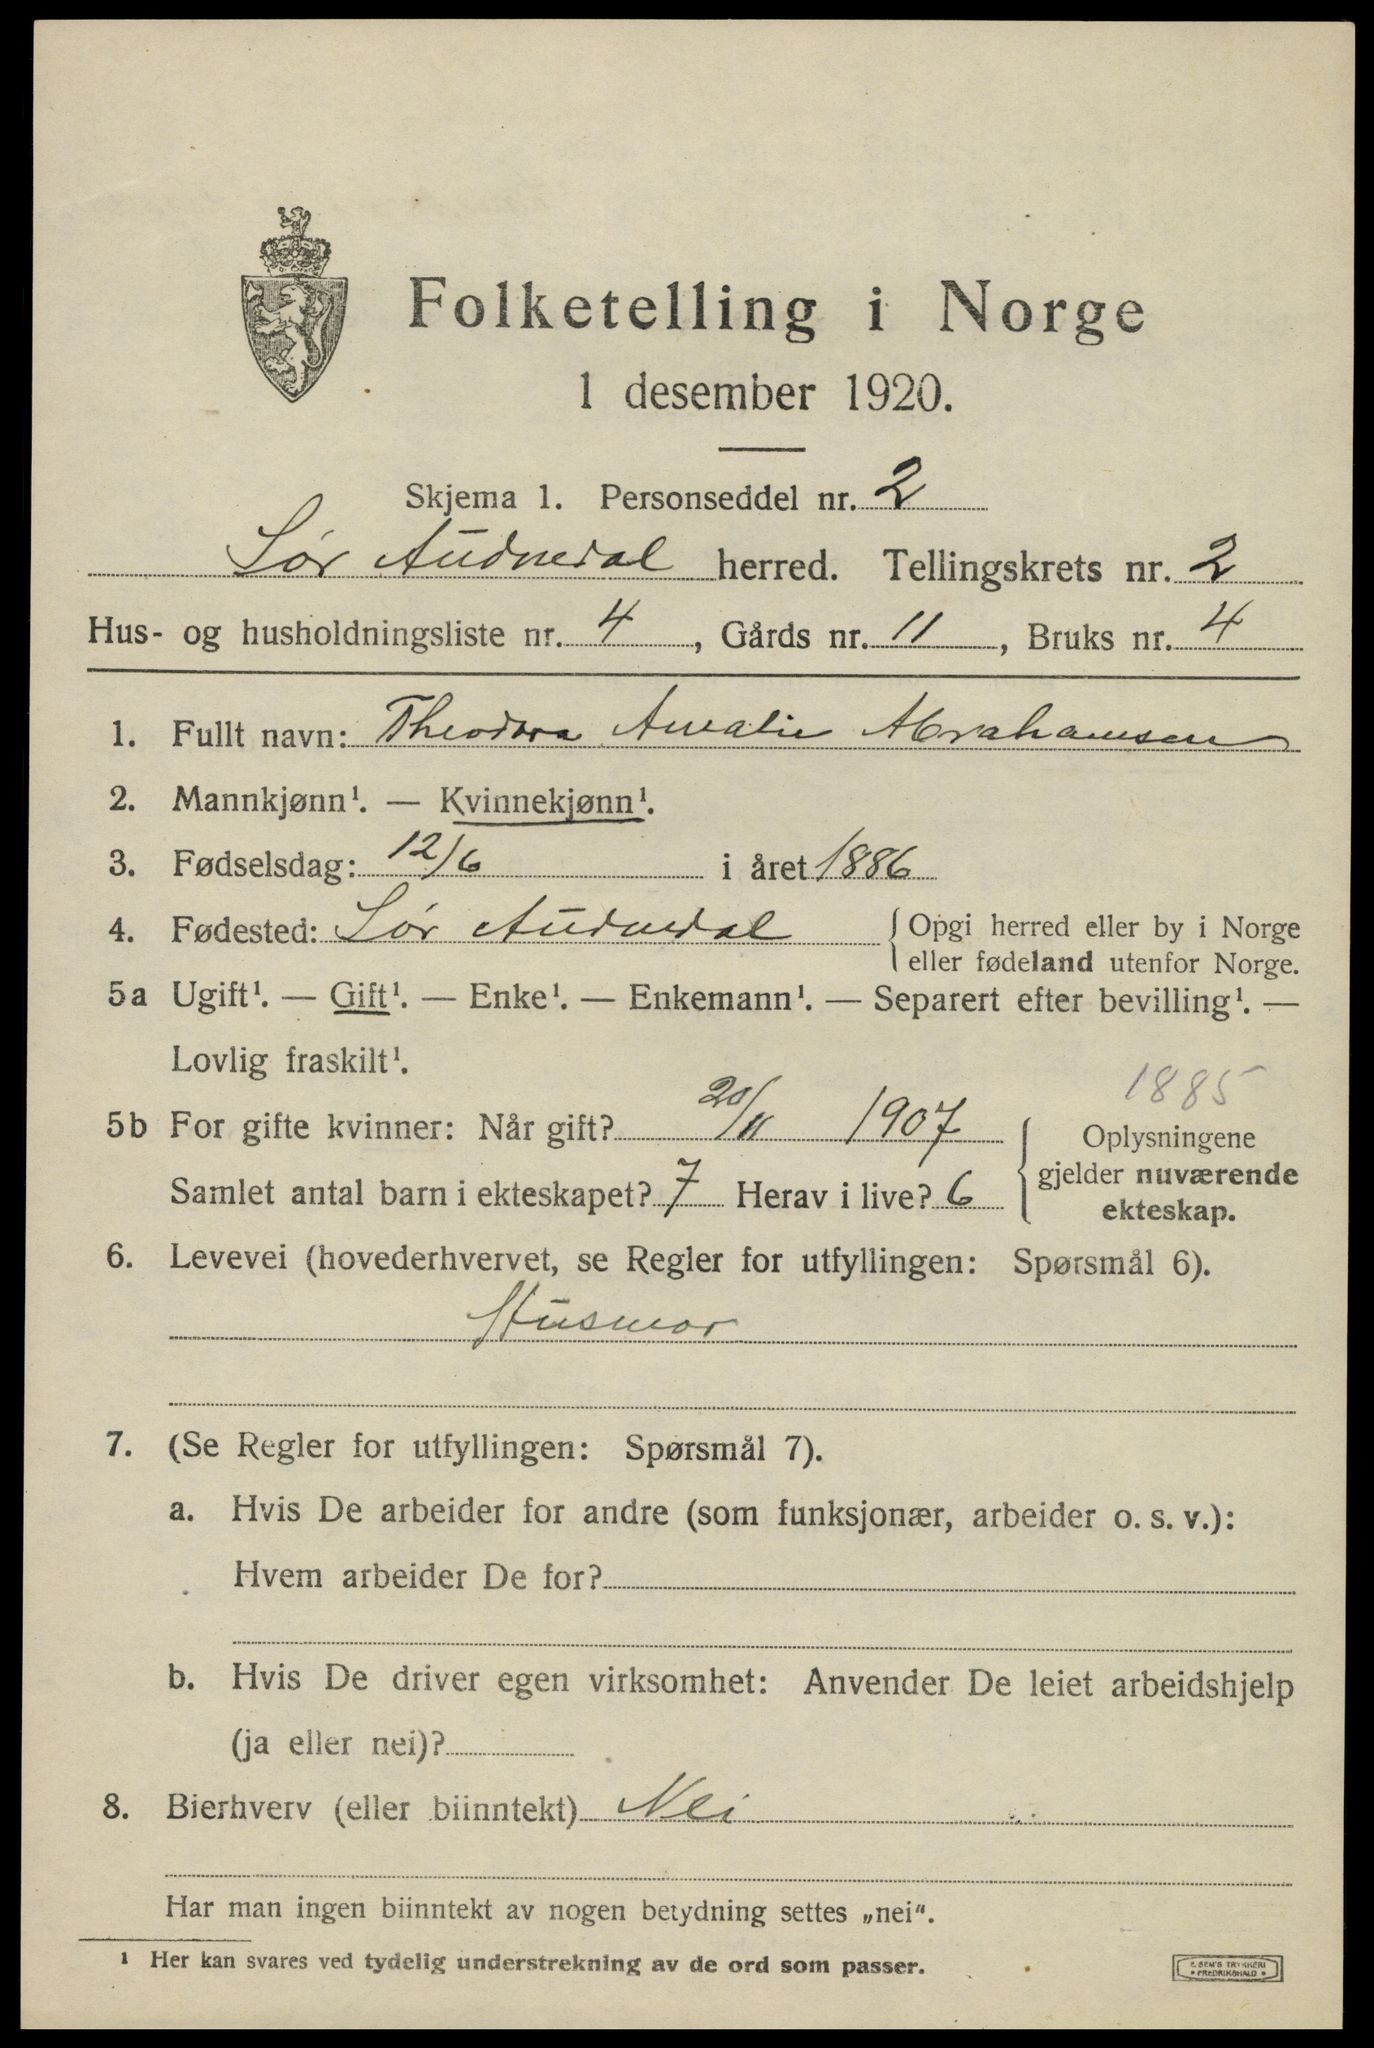 Folketelling i Norge
1 desember 1920.
Skjema 1. Personseddel nr. 2
Sør Audnedal herred. Tellingskrets nr. 2
Hus- og husholdningsliste nr. 4, Gårds nr. 11, Bruks nr. 4
1. Fullt navn: Theodora Amalie Abrahamsen
2. Mannkjønn¹. — Kvinnekjønn¹.
3. Fødselsdag: 12/6 i året 1886
4. Fødested: Sør Audnedal { Opgi herred eller by i Norge
eller fødeland utenfor Norge.
5a Ugift¹. — Gift¹. — Enke¹. — Enkemann¹. — Separert efter bevilling¹. —
Lovlig fraskilt¹.
1885
5b For gifte kvinner: Når gift? 20/11 1907 { Oplysningene
gjelder nuværende
ekteskap.
Samlet antal barn i ekteskapet? 7 Herav i live? 6
6. Levevei (hovederhvervet, se Regler for utfyllingen: Spørsmål 6).
Husmor
7. (Se Regler for utfyllingen: Spørsmål 7).
a. Hvis De arbeider for andre (som funksjonær, arbeider o. s. v.):
Hvem arbeider De for?
b. Hvis De driver egen virksomhet: Anvender De leiet arbeidshjelp
(ja eller nei)?
8. Bierhverv (eller biinntekt) Nei
Har man ingen biinntekt av nogen betydning settes „nei".
¹ Her kan svares ved tydelig understrekning av de ord som passer.
E. SEM'S TRYKKERI
• FREDRIKSHALD •